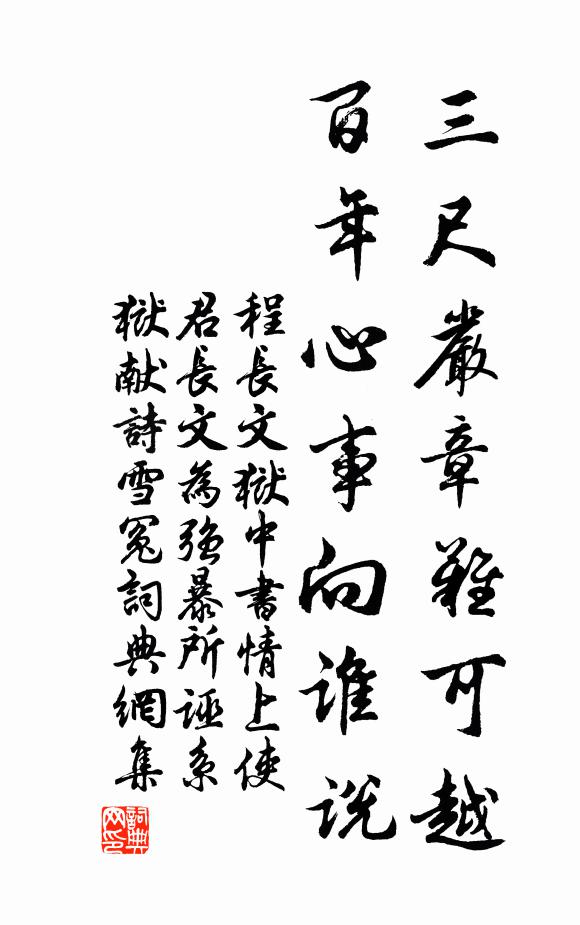 三尺嚴章難可越
百年心事向誰説
程長文獄中書情上使
君長文為強暴所誣系
獄献詩雪冤詞典網集
詞典网印